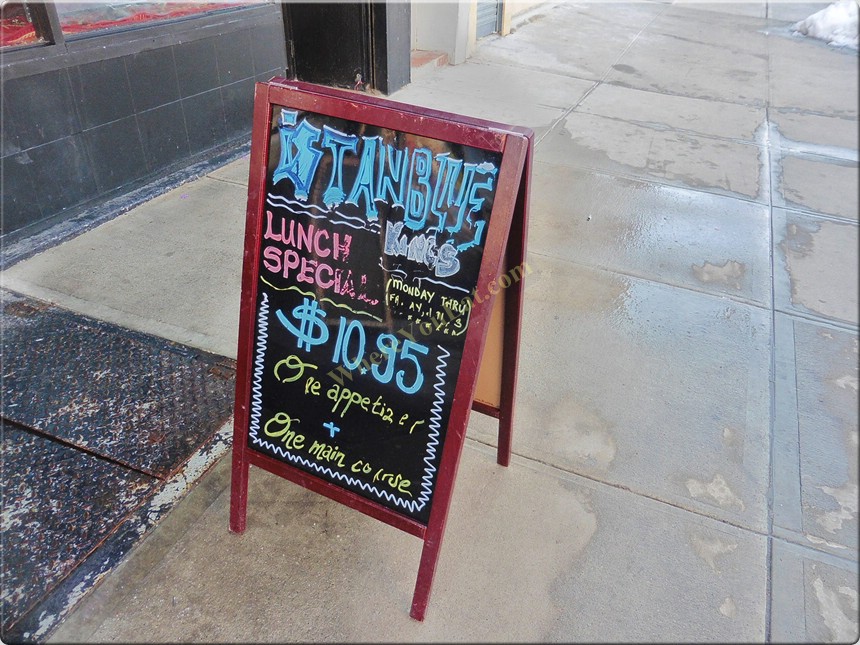 iSTANBLUE
KINGS
LUNCH
SPECIAL
(MONDAY THRU
$10.95
One appetizer
+
One main course